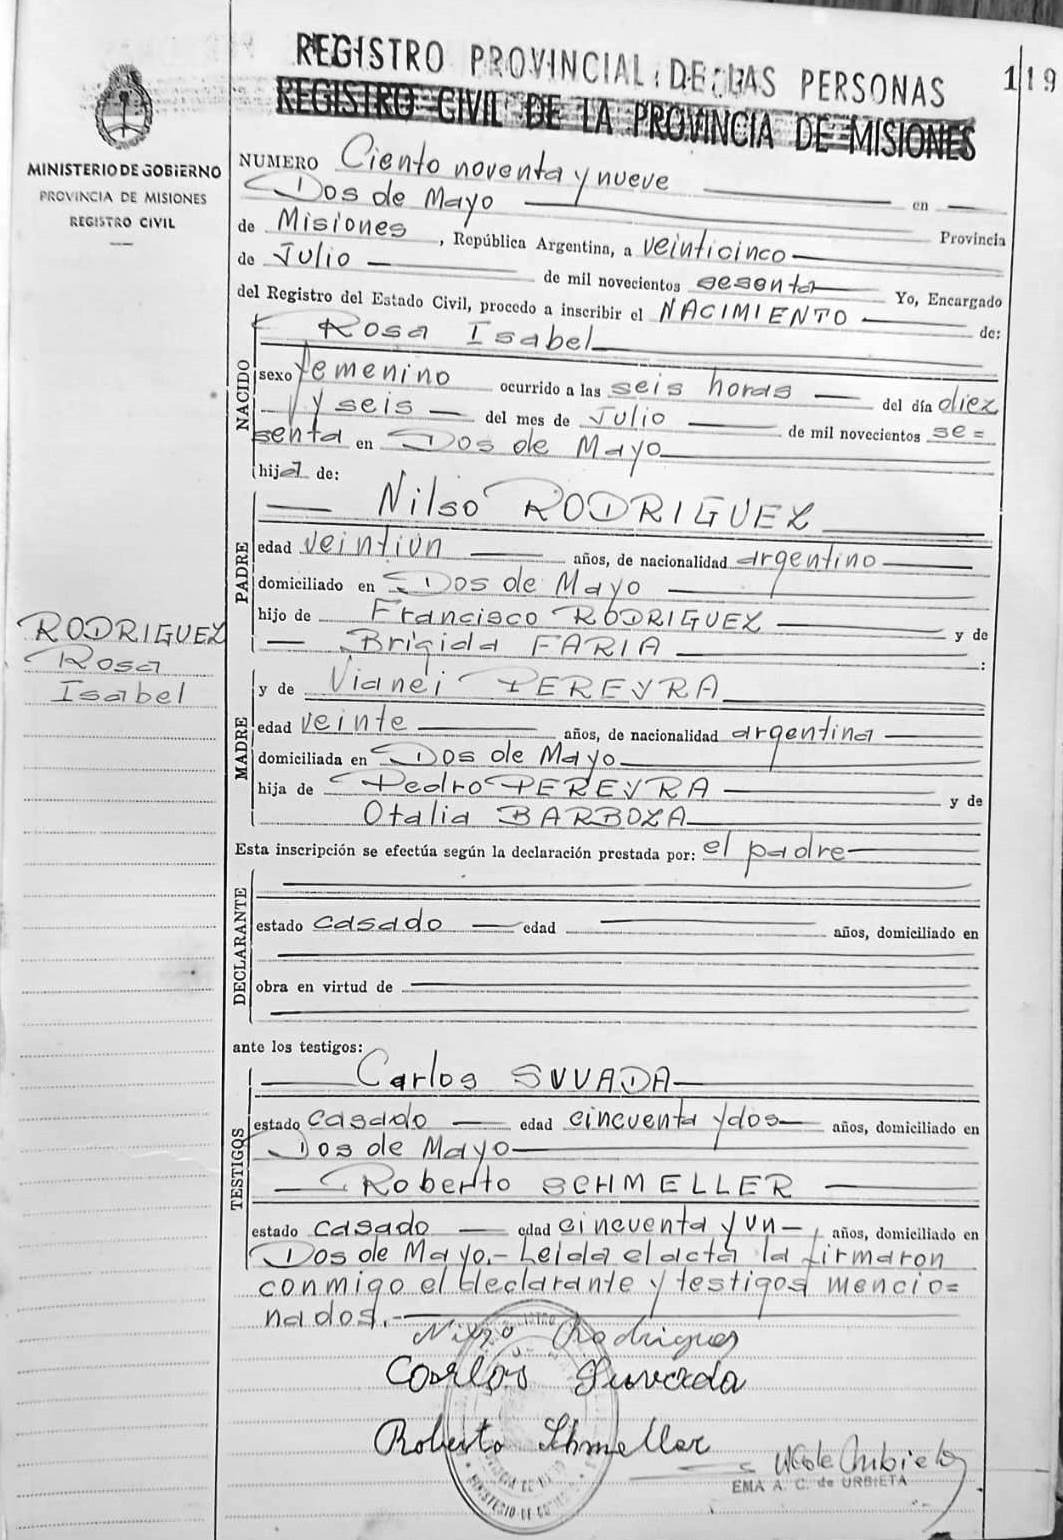 REGISTRO PROVINCIAL DE LAS PERSONAS
119
REGISTRO CIVIL DE LA PROVINCIA DE MISIONES
MINISTERIO DE GOBIERNO
PROVINCIA DE MISIONES
REGISTRO CIVIL
NUMERO Ciento noventa y nueve
Dos de Mayo en
de Misiones, República Argentina, a veinticinco Provincia
de Julio de mil novecientos sesenta Yo, Encargado
del Registro del Estado Civil, procedo a inscribir el NACIMIENTO de:
Rosa Isabel
NACIDO
sexo femenino ocurrido a las seis horas del día diez
y seis del mes de Julio de mil novecientos se=
senta en Dos de Mayo
hija de:
Nilso RODRIGUEZ
PADRE
edad veintiun años, de nacionalidad argentino
domiciliado en Dos de Mayo
hijo de Francisco RODRIGUEZ y de
Brigida FARIA :
RODRIGUEZ
Rosa
Isabel
y de Vianei PEREYRA
MADRE
edad veinte años, de nacionalidad argentina
domiciliada en Dos de Mayo
hija de Pedro PEREYRA y de
Otalia BARBOZA
Esta inscripción se efectúa según la declaración prestada por: el padre
DECLARANTE
estado casado edad años, domiciliado en
obra en virtud de
ante los testigos:
Carlos SUVADA
TESTIGOS
estado casado edad cincuenta y dos años, domiciliado en
Dos de Mayo
Roberto SCHMELLER
estado casado edad cincuenta y un años, domiciliado en
Dos de Mayo.- Leida el acta la firmaron
conmigo el declarante y testigos mencio=
nados.-
Nilso Rodrigues
Carlos Suvada
Roberto Schmeller
EMA A. C. de URBIETA